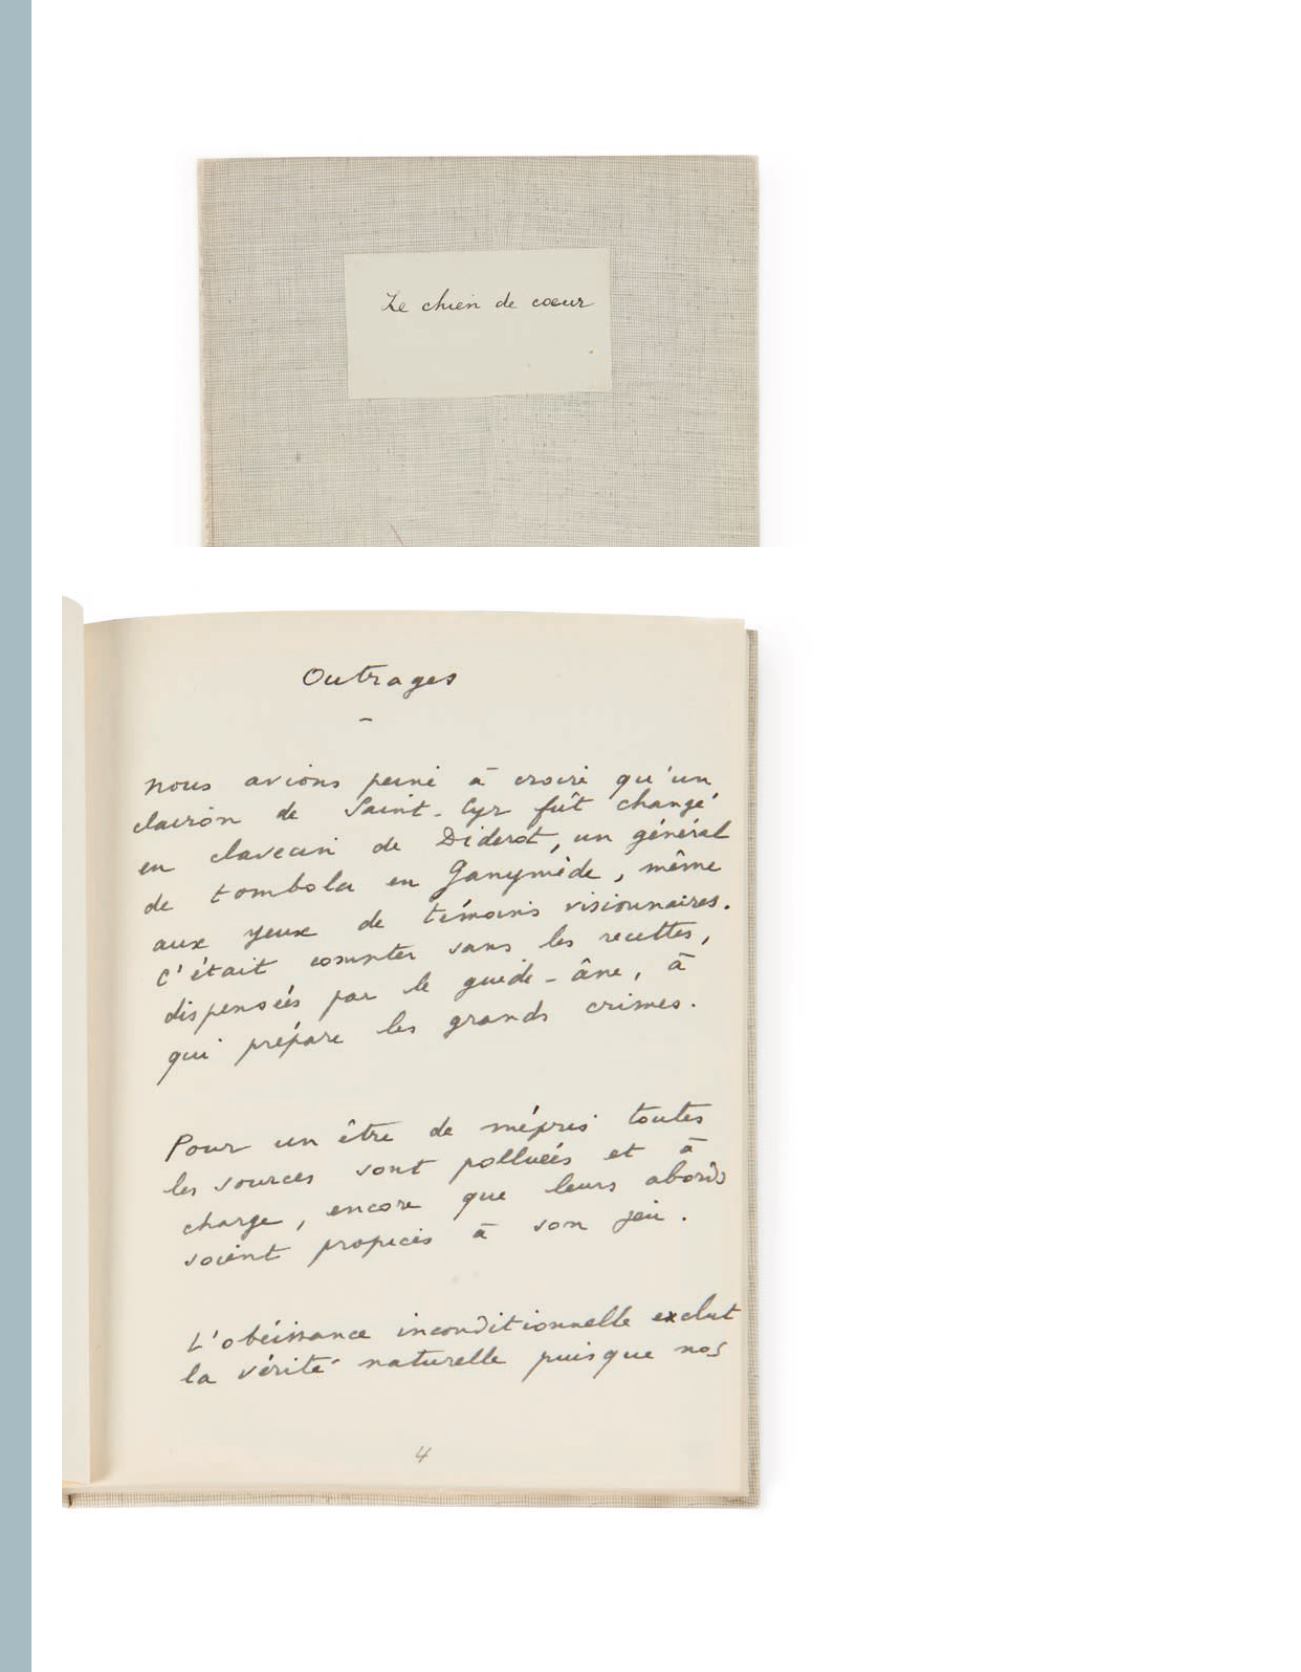 Le chien de coeur
Outrages
-
Nous avions peiné à croire qu'un
clairon de Saint-Cyr fût changé
en clavecin de Diderot, un général
de tombola en Ganymède, même
aux yeux de témoins visionnaires.
C'était compter sans les recettes,
dispensées par le guide-âne, à
qui prépare les grands crimes.
Pour un être de mépris toutes
les sources sont polluées et à
charge, encore que leurs abords
soient propices à son jeu.
L'obéissance inconditionnelle exclut
la vérité naturelle puisque nos
4